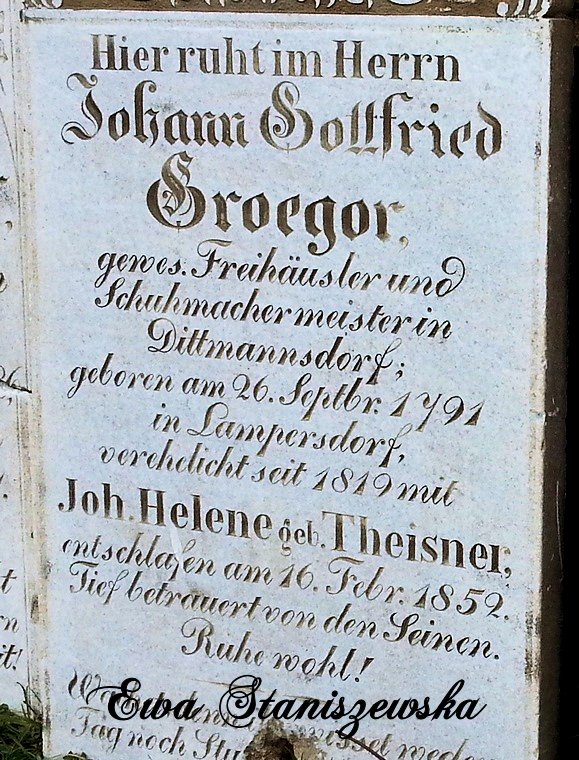 Hier ruht im Herrn
Johann Gottfried
Groegor,
gewes. Freihäusler und
Schuhmachermeister in
Dittmannsdorf;
geboren am 26. Septbr. 1791
in Lampersdorf,
verehelicht seit 1819 mit
Joh. Helene geb. Theisner,
entschlafen am 16. Febr. 1852.
Tief betrauert von den Seinen.
Ruhe wohl!
Ewa Staniszewska
wisset weder
Tag noch
26.
t
rn
it!